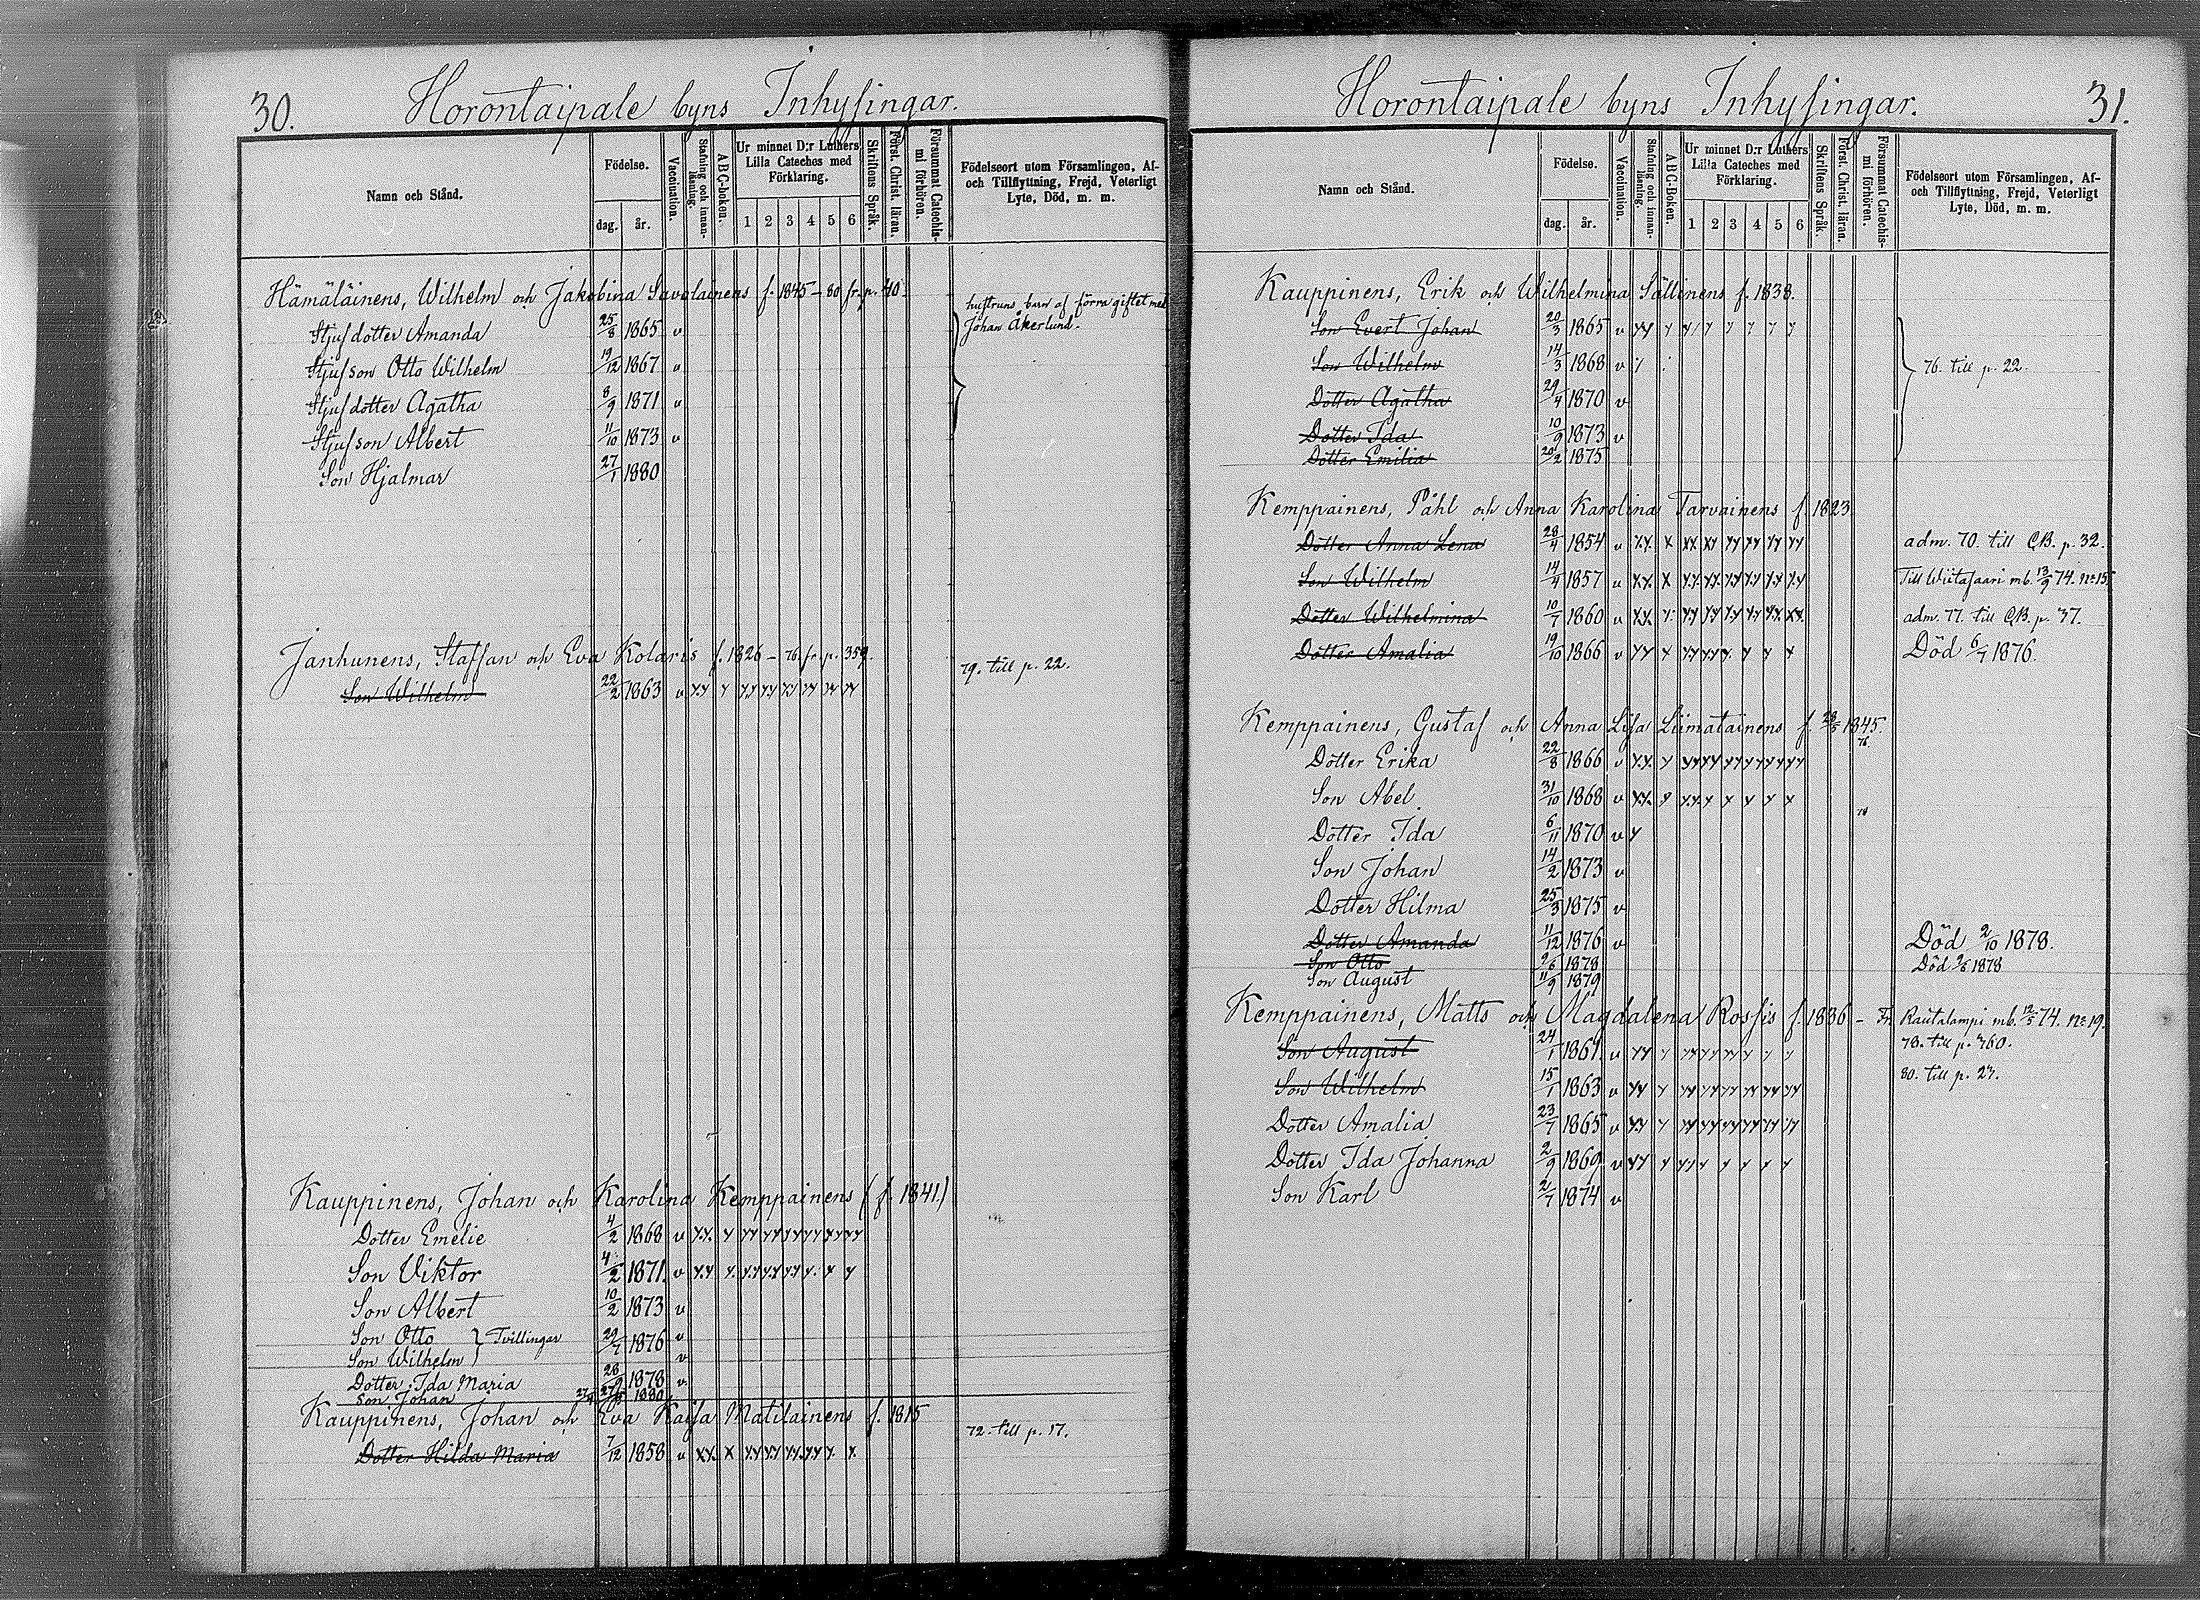 30.
Horontaipale byns Inhysingar.
Namn och Stånd.
Födelse.
dag. år.
Vaccination.
Stafning och innan-läsning.
ABC-boken.
Ur minnet D:r Luthers Lilla Cateches med Förklaring.
1 2 3 4 5 6
Skriftens Språk.
Först. Christ. läran.
Försummat Catechis-mi förhören.
Födelseort utom Församlingen, Af- och Tillflyttning, Frejd, Veterligt Lyte, Död, m. m.
Hämäläinens, Wilhelm och Jakobina Savolainens f. 1845 – 80 fr. p. 40.
hustruns barn af förra giftet med
Johan Åkerlund.
Stjufdotter Amanda 25/8 1865 v
Stjufson Otto Wilhelm 19/12 1867 v
Stjufdotter Agatha 8/9 1871 v
Stjufson Albert 11/10 1873 v
Son Hjalmar 27/1 1880
Janhunens, Staffan och Eva Kolaris f. 1826 – 76 fr. p. 359.
Son Wilhelm 22/2 1863 v 79. till p. 22.
Kauppinens, Johan och Karolina Kemppainens (f. 1841.)
Dotter Emelie 4/2 1868 v
Son Viktor 4/2 1871. v
Son Albert 10/2 1873 v
Son Otto } Tvillingar 29/7 1876 v
Son Wilhelm v
Dotter Ida Maria 28/9 1878 v
Son Johan 1880
Kauppinens, Johan och Eva Kaisa Matilainens f. 1815
72. till p. 17.
Dotter Hilda Maria 7/12 1858 v
31.
Horontaipale byns Inhysingar.
Namn och Stånd.
Födelse.
dag. år.
Vaccination.
Stafning och innan-läsning.
ABC-Boken.
Ur minnet D:r Luthers Lilla Cateches med Förklaring.
1 2 3 4 5 6
Skriftens Språk.
Först. Christ. läran.
Försummat Catechis-mi förhören.
Födelseort utom Församlingen, Af- och Tillflyttning, Frejd, Veterligt Lyte, Död, m. m.
Kauppinens, Erik och Wilhelmina Sällinens f. 1838.
Son Evert Johan 20/3 1865 v
Son Wilhelm 14/3 1868 v 76. till p. 22.
Dotter Agatha 29/4 1870 v
Dotter Ida 10/9 1873 v
Dotter Emilia 20/2 1875
Kemppainens, Påhl och Anna Karolina Tarvainens f. 1823.
Dotter Anna Lena 28/4 1854 v adm. 70. till QB. p. 32.
Son Wilhelm 14/4 1857 v Till Wiitasaari mb. 13/9 74. No 15
Dotter Wilhelmina 10/7 1860 v adm. 77. till QB. p. 37.
Dotter Amalia 19/10 1866 v Död 6/7 1876.
Kemppainens, Gustaf och Anna Lisa Liimatainens f. 28/5 1845.
76.
Dotter Erika 22/8 1866 v
Son Abel 31/10 1868 v
Dotter Ida 6/11 1870 v
Son Johan 14/2 1873 v
Dotter Hilma 25/3 1875 v
Dotter Amanda 11/12 1876 v Död 2/10 1878.
Son Otto 2/6 1878 Död 2/6 1878
Son August 11/9 1879
Kemppainens, Matts och Magdalena Rossis f. 1836 – Fr. Rautalampi mb. 12/5 74. No 19.
Son August 24/1 1861. v 78. till p. 360.
Son Wilhelm 15/1 1863 v 80. till p. 23.
Dotter Amalia 23/7 1865 v
Dotter Ida Johanna 2/9 1869 v
Son Karl 2/7 1874 v